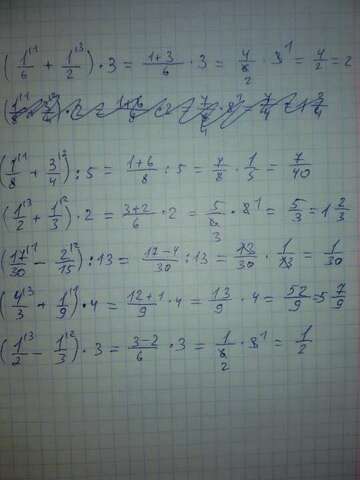 (1/6 + 1/2) · 3 = (1+3)/6 · 3 = 4/6 · 3 = 4/2 = 2
(1/8 + 3/4) : 5 = (1+6)/8 : 5 = 7/8 · 1/5 = 7/40
(1/2 + 1/3) · 2 = (3+2)/6 · 2 = 5/6 · 2 = 5/3 = 1 2/3
(17/30 − 2/15) : 13 = (17−4)/30 : 13 = 13/30 · 1/13 = 1/30
(4/3 + 1/9) · 4 = (12+1)/9 · 4 = 13/9 · 4 = 52/9 = 5 7/9
(1/2 − 1/3) · 3 = (3−2)/6 · 3 = 1/6 · 3 = 1/2